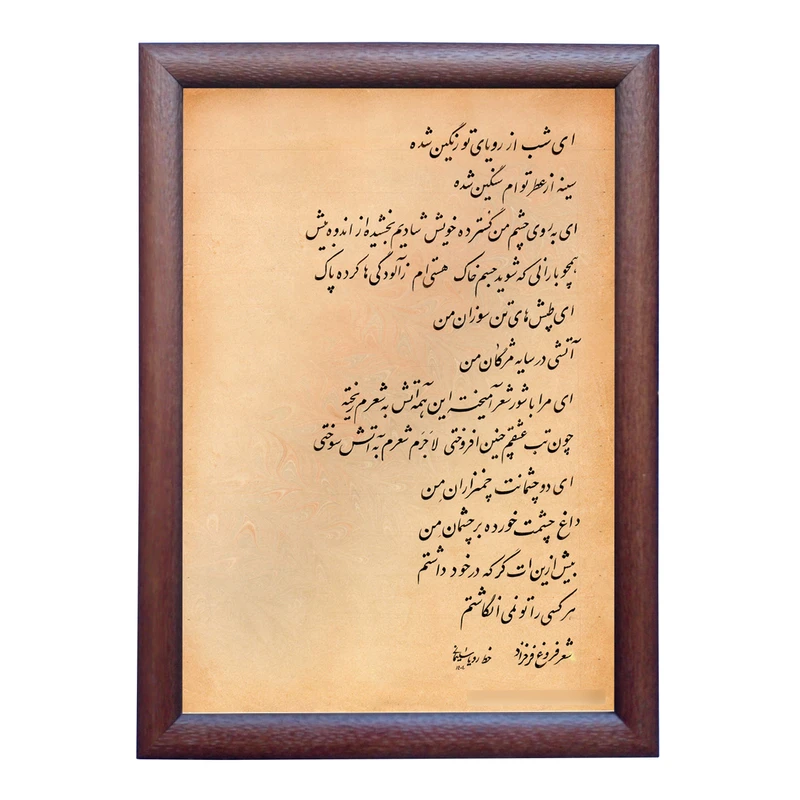 ای شب از رویای تو رنگین شده
سینه از عطر توام سنگین شده
ای به روی چشم من گسترده خویش شادیم بخشیده از اندوه بیش
همچو بارانی که شوید جسم خاک هستی ام زآلودگی ها کرده پاک
ای طپش های تن سوزان من
آتشی در سایه مژگان من
ای مرا با شور شعر آمیخته این همه آتش به شعرم ریخته
چون تب عشقم چنین افروختی لاجَرَم شعرم به آتش سوختی
ای دو چشمانت چمنزاران من
داغ چشمت خورده بر چشمان من
بیش ازین ات گر که در خود داشتم
هر کسی را تو نمی انگاشتم
شعر فروغ فرخزاد خط